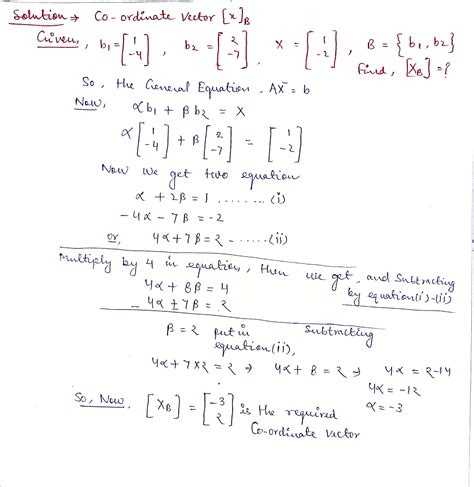 Solution → Co-ordinate vector [x]B
Given, b1 = [1 -4], b2 = [2 -7], X = [1 -2], B = {b1, b2}
Find, [XB] = ?
So, the General Equation, AX = b
Now, αb1 + βb2 = X
α[1 -4] + β[2 -7] = [1 -2]
Now we get two equation
α + 2β = 1 ........ (i)
-4α - 7β = -2
or, 4α + 7β = 2 ------ (ii)
Multiply by 4 in equation, then we get, and Subtracting
by equation (i)-(ii)
4α + 8β = 4
- 4α ± 7β = 2
Subtracting
β = 2 put in
equation (ii),
4α + 7×2 = 2 → 4α + 8 = 2 → 4α = 2-14
4α = -12
α = -3
So, Now, [XB] = [-3 2] is the required
Co-ordinate vector